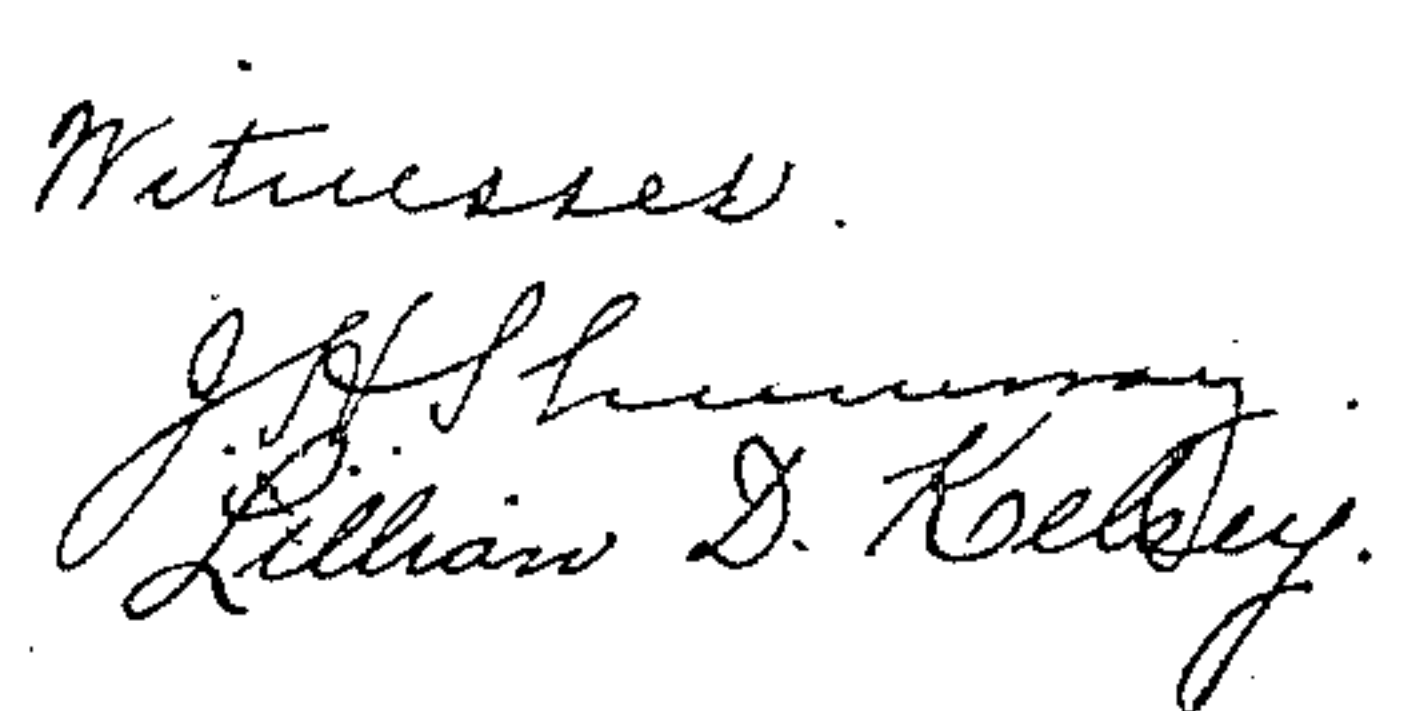 Witnesses.
J. H. Shumway.
Lillian D. Kelsey.